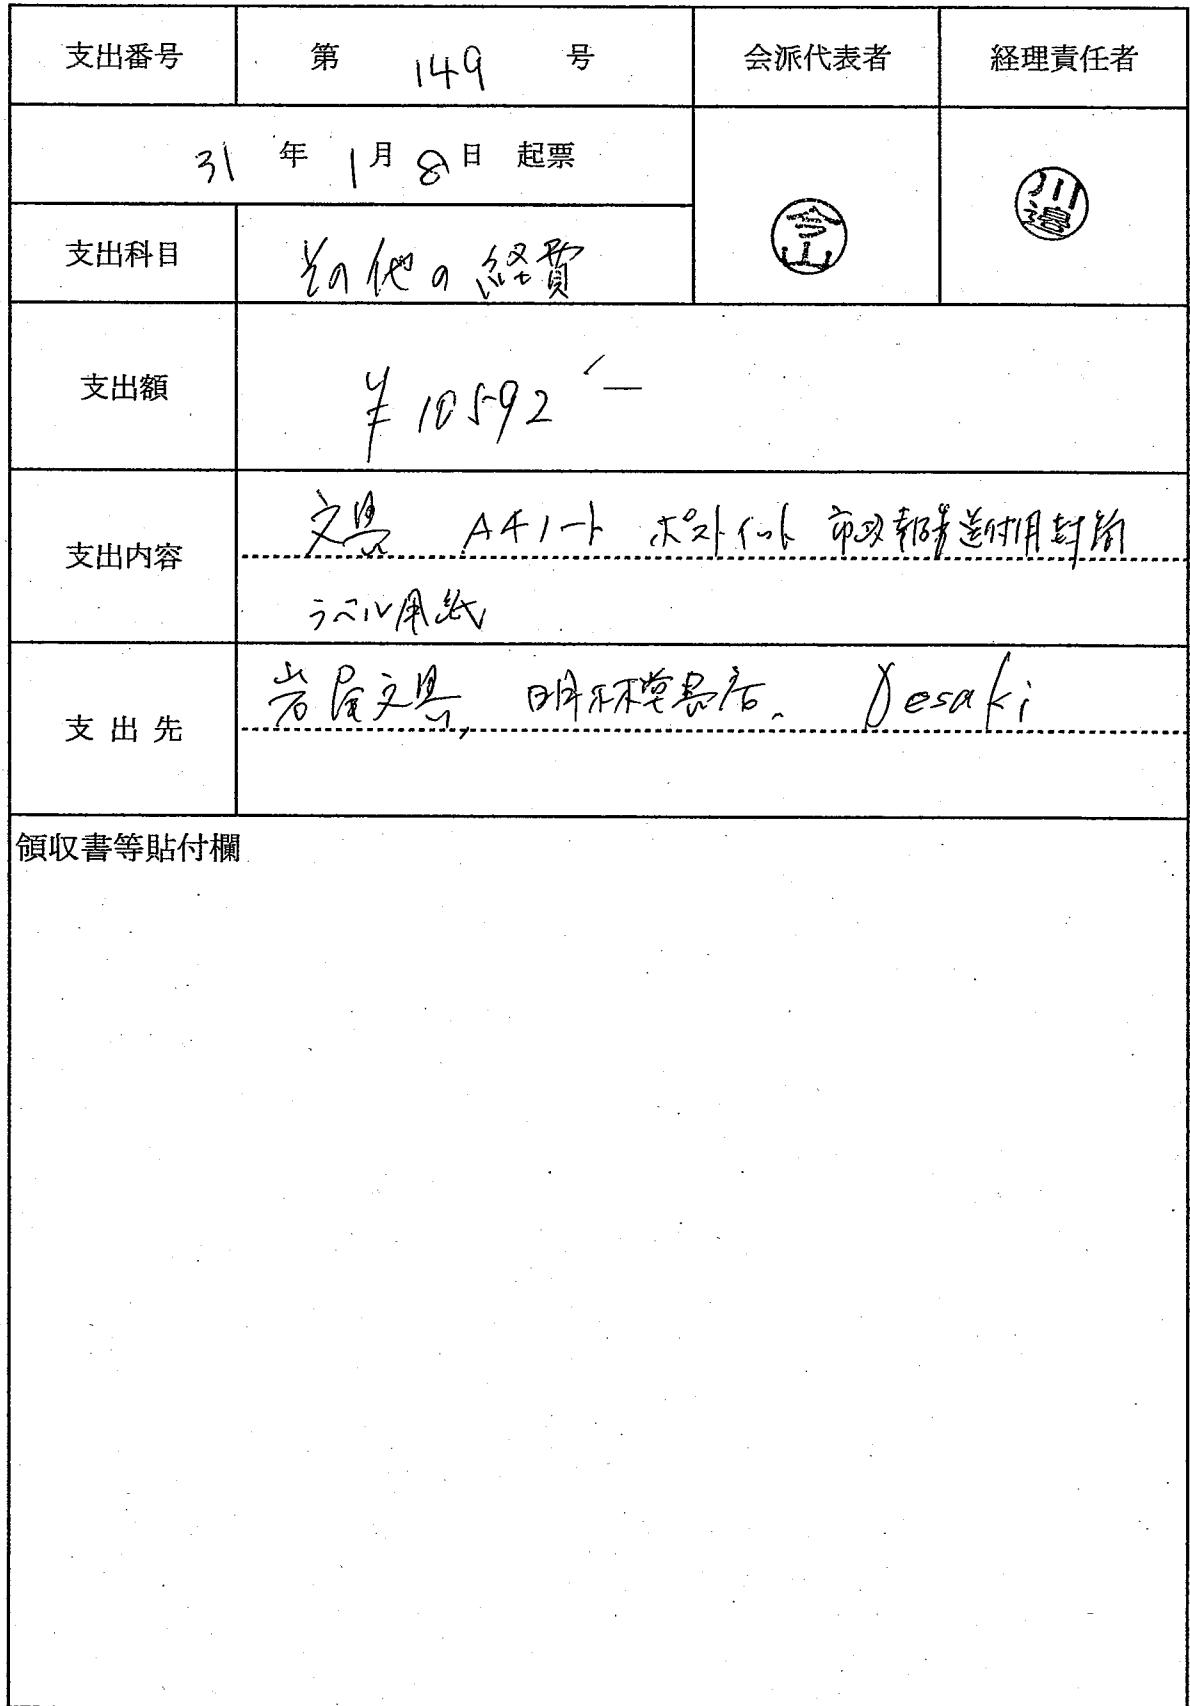 支出番号 第 149 号 会派代表者 経理責任者
31 年 1月 8日 起票
今山
川邉
支出科目 その他の経費
支出額 ¥10592-
支出内容 文具 A4ノート ポストイット 市政報告送付用封筒
ラベル用紙
支出先 岩尾文具, 明林堂書店、 Desaki
領収書等貼付欄